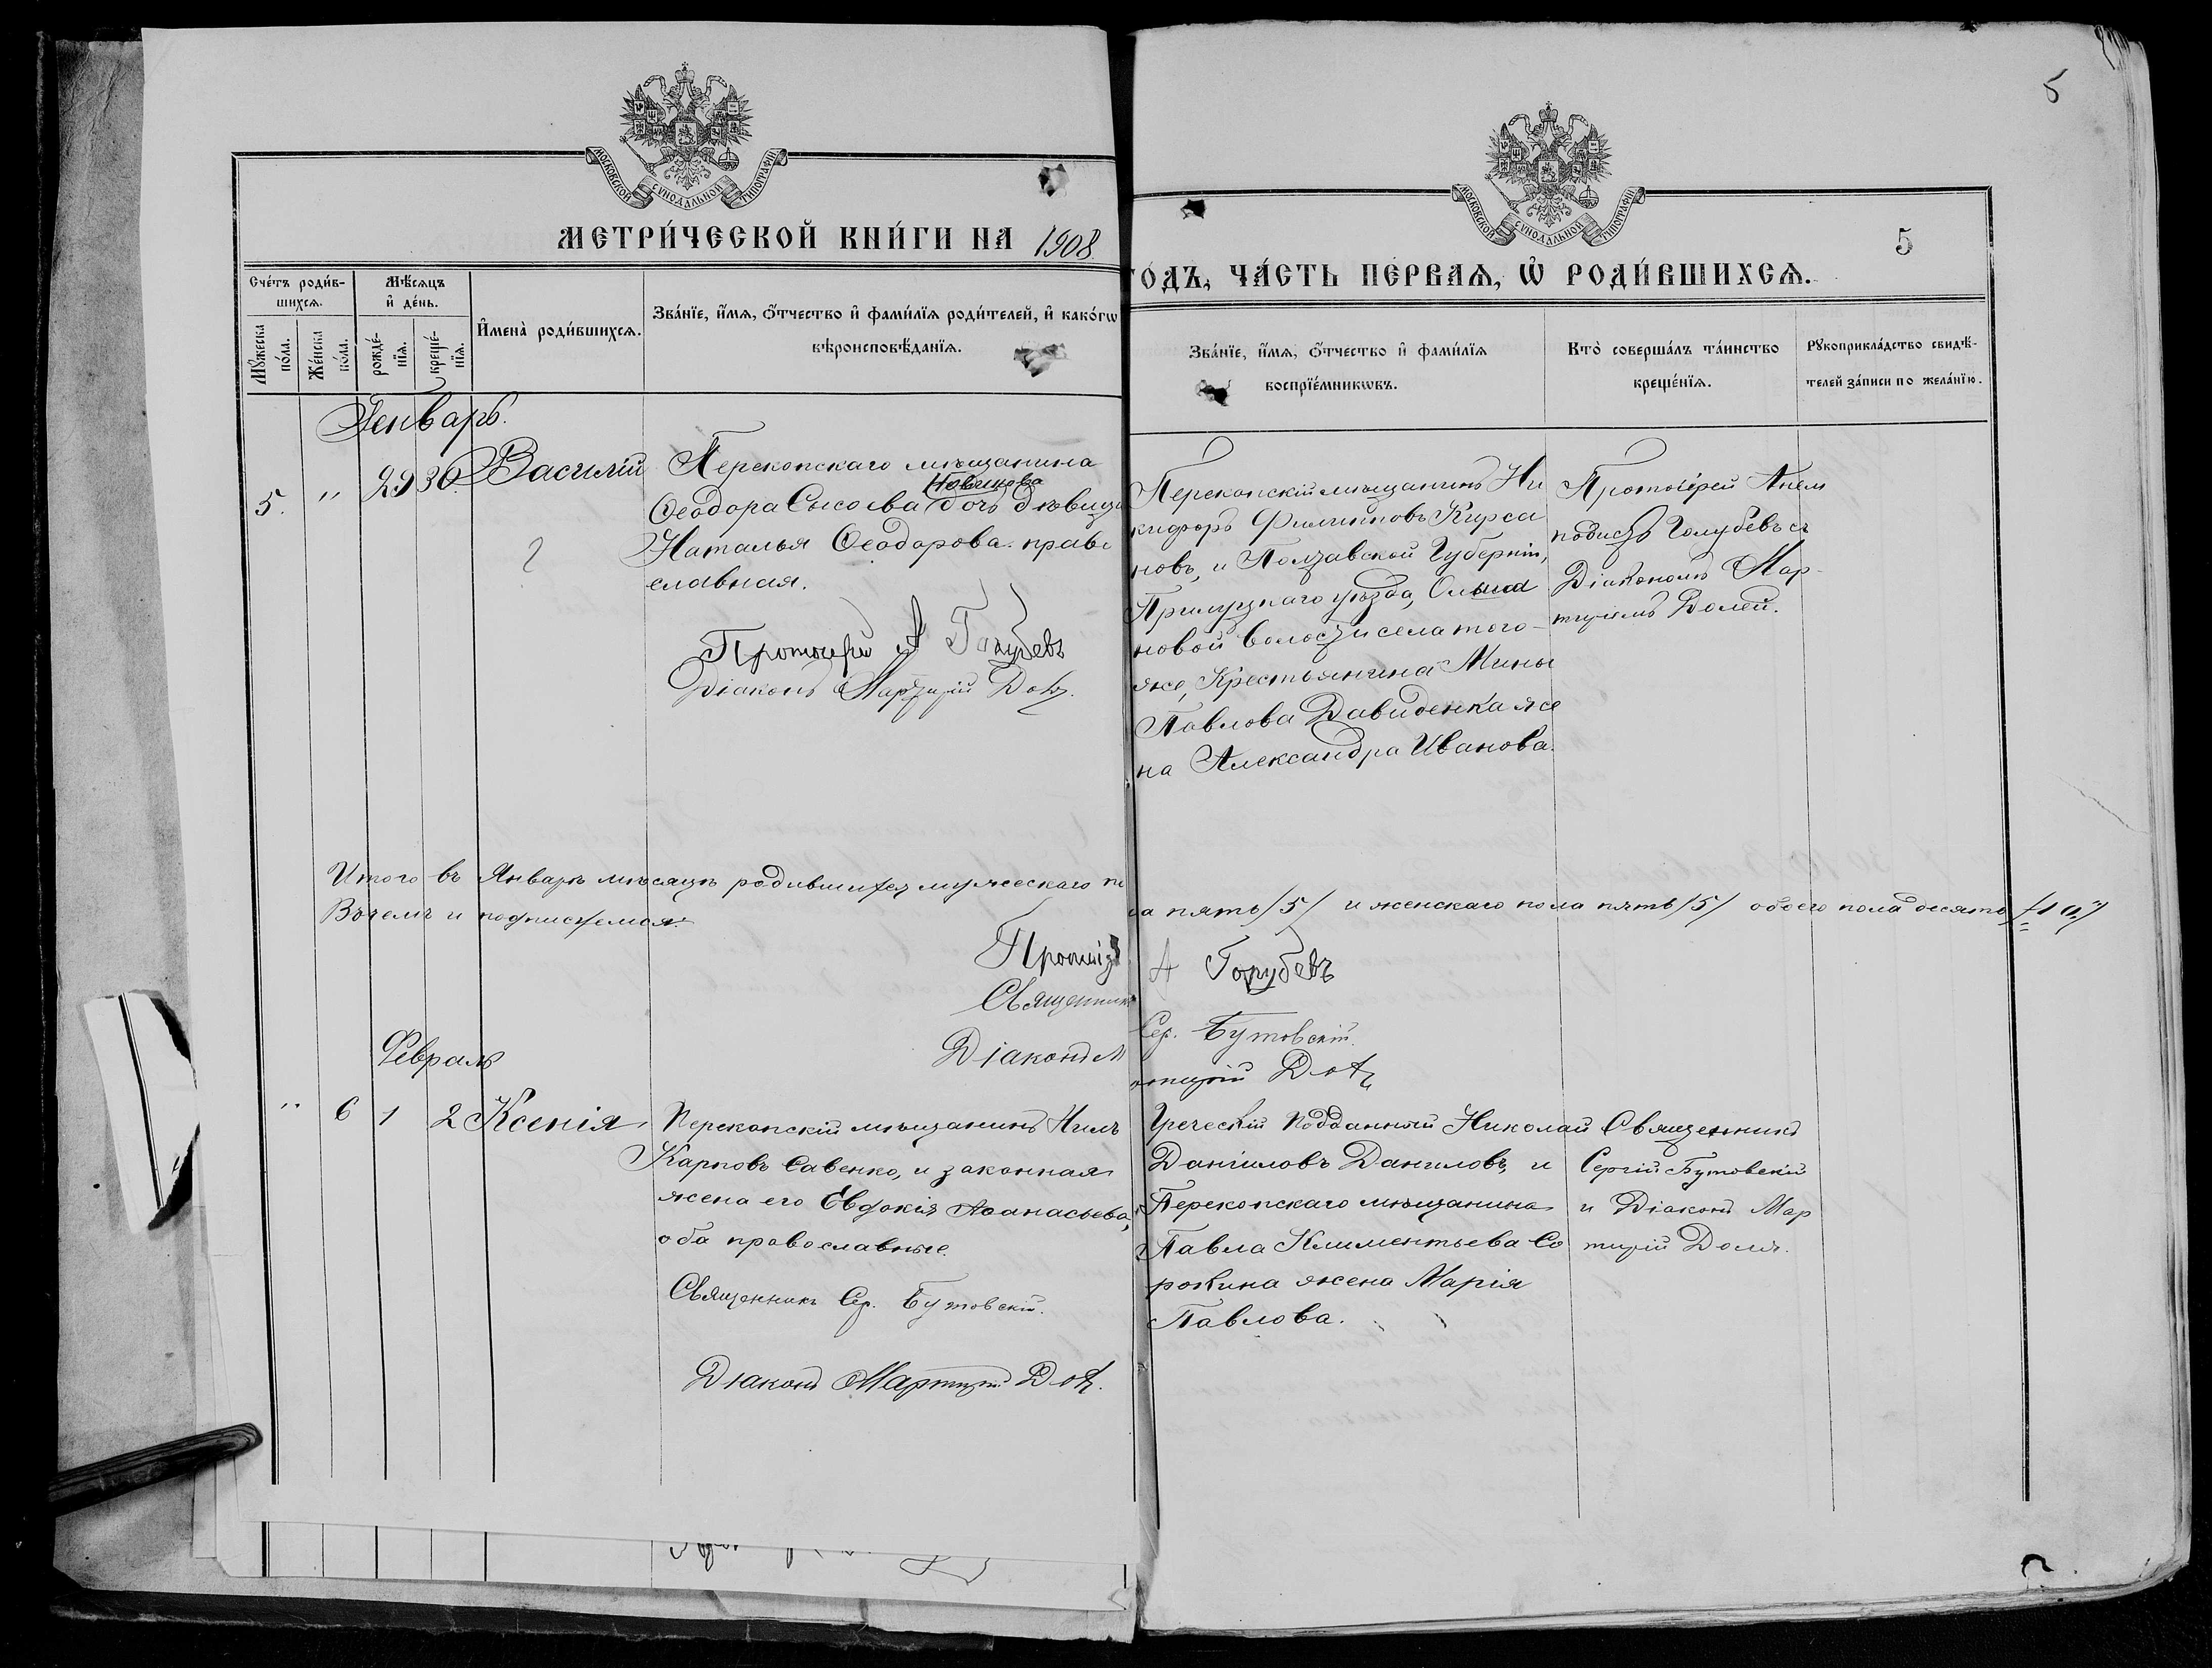 5
МОСКОВСКОЙ СѴНОДАЛЬНОЙ ТИПОГРАФІИ
МОСКОВСКОЙ СѴНОДАЛЬНОЙ ТИПОГРАФІИ
МЕТРИ́ЧЕСКОЙ КНИ́ГИ НА 1908
ГО́ДЪ, ЧА́СТЬ ПЕ́РВАѦ, Ѡ҆ РОДИ́ВШИХСѦ.
5
Сче́тъ роди́в-
шихсѧ.
Мѣ́сѧцъ
и҆ де́нь.
Мꙋ́жеска
по́ла.
Же́нска
по́ла.
рожде́-
нїѧ.
креще́-
нїѧ.
И҆мена̀ роди́вшихсѧ.
Зва́нїе, и҆́мѧ, о҆́тчество и҆ фами́лїѧ роди́телей, и҆ како́гѡ
вѣроисповѣ́данїѧ.
Зва́нїе, и҆́мѧ, о҆́тчество и҆ фами́лїѧ
воспрїе́мникѡвъ.
Кто̀ соверша́лъ та́инство
креще́нїѧ.
Рꙋкоприкла́дство свидѣ́-
телей за́писи по жела́нїю.
Генварь.
5. " 29 30 Василій
Перекопскаго мѣщанина
Новикова
Ѳеодора Сысоева дочь дѣвица
Наталья Ѳеодорова. право
славная.
Протоіерей А Голубевъ
Діаконъ Мартирій Доля.
Перекопскій мѣщанинъ Ни
кифоръ Филиповъ Кирса
новъ, и Полтавской Губерніи,
Прилуцкаго уѣзда, Ольша
новой волости села того-
же, Крестьянина Мины
Павлова Давиденка же
на Александра Иванова.
Протоіерей Анем
подистъ Голубевъ съ
Діакономъ Мар-
тиріемъ Долей.
Итого въ Январѣ мѣсяцѣ родившихся мужескаго по
ла пять /5/ и женскаго пола пять /5/ обоего пола десять /10/
Въ чемъ и подписуемся:
Протоіер А Голубевъ
Священникъ Сер. Бутовскій.
Діаконъ Мартирій Доля
Февраль
" 6 1 2 Ксенія
Перекопскій мѣщанинъ Нилъ
Карповъ Савенко, и законная
жена его Евдокія Аѳанасьева,
оба православные.
Священникъ Сер. Бутовскій.
Діаконъ Мартирій Доля.
Греческій подданный Николай
Даниловъ Даниловъ, и
Перекопскаго мѣщанина
Павла Климентьева Со
рокина жена Марія
Павлова.
Священникъ
Сергій Бутовскій
и Діаконъ Мар
тирій Доля.